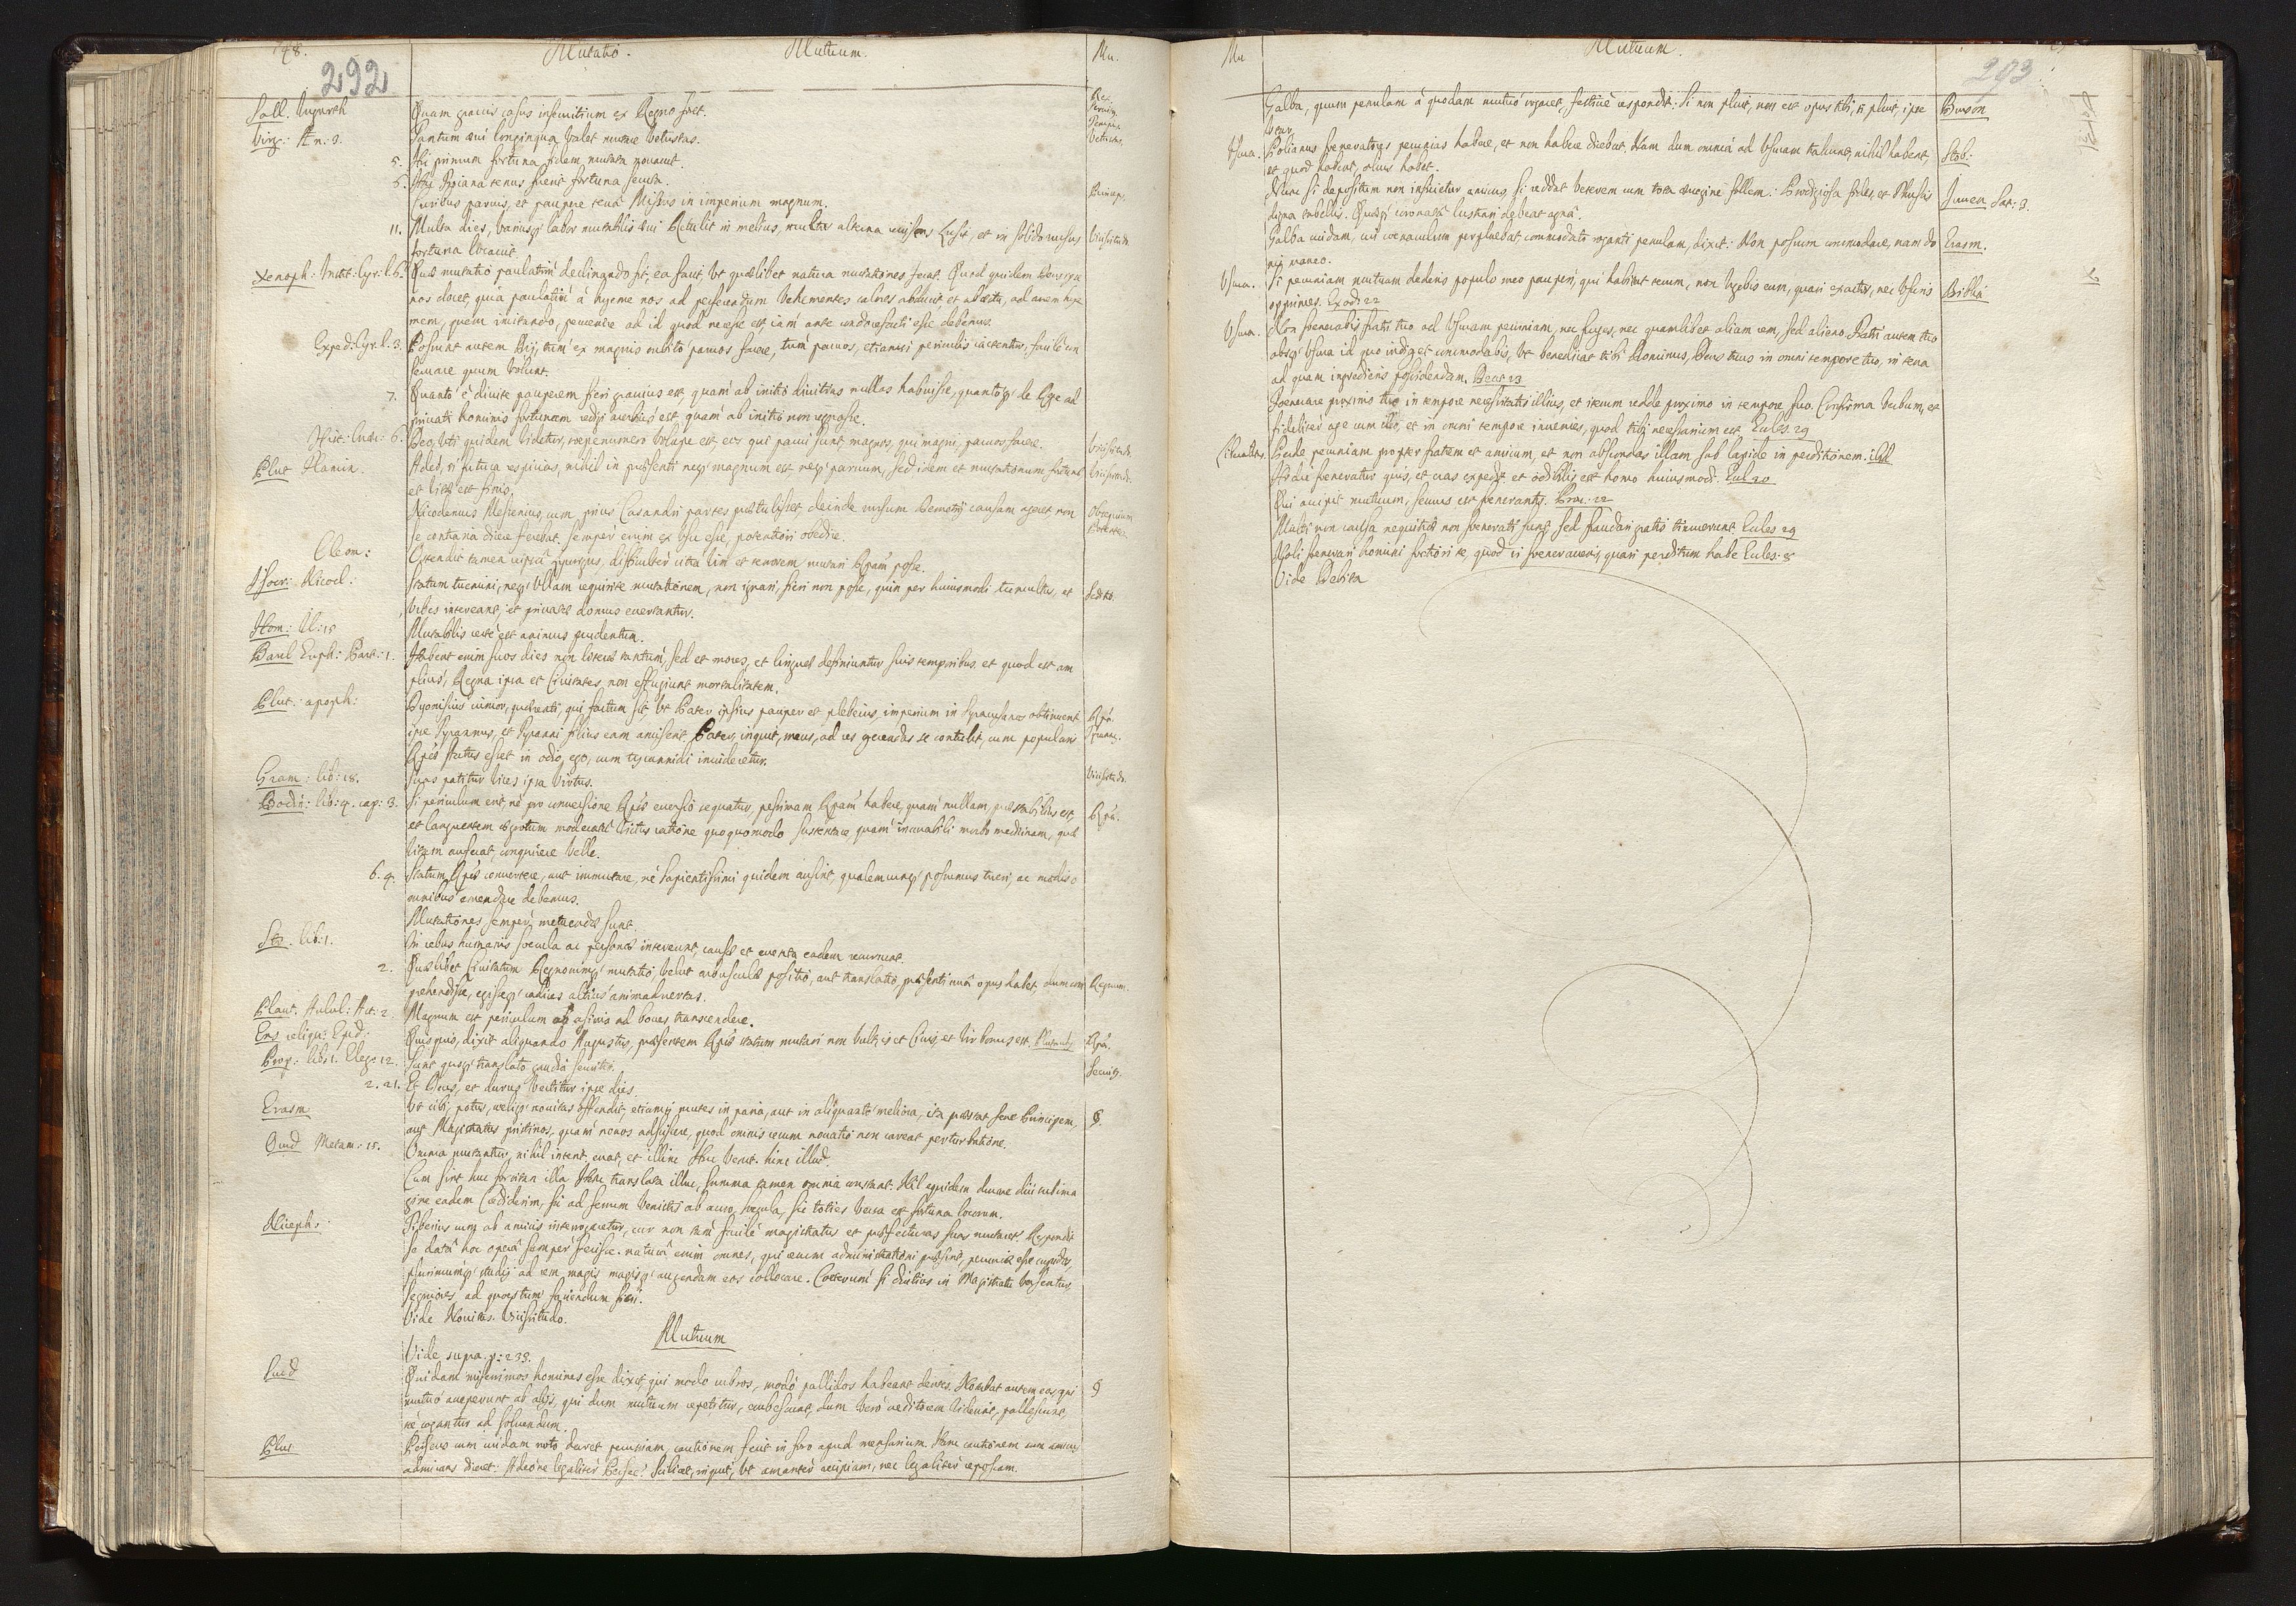 292
Mutatio. Mutuum. Mu.
Sall. Iugurth Quam gravis casus in servitium ex Regno foret.
Virg: Æn. 3. Tantum ævi longinqua valet mutare vetustas. Vetustas.
5. Hic primum fortuna fidem mutata novavit.
5. Hac Troiana tenus fuerit fortuna secuta.
Curibus parvis, et paupere terrâ Missus in imperium magnum.
11. Multa dies, variusq; labor mutabilis ævi Retulit in melius, multos alterna revisens Lusit, et in solido rursus Vicissitudo.
fortuna locavit.
Xenoph: Instit: Cyr: l. 6. Quæ mutatio paulatim declinando fit, ea facit, ut quælibet natura mutationes ferat. Quod quidem
nos docet, quia paulatim à hyeme nos ad perferendum vehementes calores abducit et ab æstu, ad acrem hye
mem, quem imitando, pervenire ad id quod necesse est, iam ante condocefacti esse debemus.
Exped: Cyr: l. 3. Possunt autem Dij, tum ex magnis subito parvos facere, tum parvos, etiamsi periculis iactentur, facile con
servare quum volunt.
7. Quanto è divite pauperem fieri gravius est, quam ab initio divitias nullas habuisse, quantoq; de Rege ad
privati hominis fortunam redigi acerbius est, quam ab initio non regnasse.
6. Deo, uti quidem videtur, sæpenumero volupe est eos qui parvi sunt, magnos, qui magni, parvos facere. Vicissitudo.
Plut Flamin. Adeo, si futura espicias, nihil in præsenti neq; magnum est neq; parvum, sed idem et mutationum, fortunæ Vicissitud.
et vitæ est finis.
Nicodemus Messenius, cum prius Casandri partes prætulisset, deinde rursum Demetrij causam ageret non Obsequium
se contraria dicere ferebat, semper enim ex usu esse, potentiori obedire.
Cleom: Ostendit tamen ipse Lycurgus, difficulter citra vim et terrorem mutari Rempub. posse.
Isocr: Nicocl: Statum tuemini, neq; ullam requirite mutationem, non ignari, fieri non posse, quin per huiusmodi tumultus, et Seditio.
urbes intereant, et privatæ domus evertantur.
Hom: Il: 15 Mutabilis certè est animus prudentum.
Barcl Euph: Part: 1. Habent enim suos dies non literæ tantum, sed et mores, et linguæ definiuntur suis temporibus. et quod est am
plius, Regna ipsa et Civitates non effugiunt mortalitatem.
Plut: apoph: Dyonisius iunior, quærenti, qui factum sit, ut Pater ipsius pauper et plebeius, imperium in Syracusanos obtinuerit
ipse Tyrannus, et Tyranni filius eam amiserit Pater, inquit, meus, ad res gerendas se contulit, cum popularis
Reip. status esset in odio, ego, cum tyrannidi invideretur.
Gram: lib: 18. Suas patitur vices ipsa virtus. Vicissitudo.
Bodin: lib: 4. cap: 3. Si periculum erit, ne pro conversione Reip. eversio sequatur, pessimam Remp. habere, quam nullam, præstabilius est,
et languentem ægrotum moderatâ victus ratione quoquomodo sustentare, quam incurabili morbo medicinam, quæ
vitam auferat, conquirere velle.
6. 4. Statum Reip. convertere, aut immutare, ne sapientissimi quidem ausint, qualemcunq; possumus tueri, ac modis
omnibus emendare debemus.
Mutationes semper metuendæ sunt.
lib: 1. In rebus humanis sæcula ac personæ intereunt, causæ et eventa eadem recurrunt.
2. Quælibet Civitatum Regnorumq; mutatio, velut arbusculæ positio, aut translatio, præsenti curâ opus habet, dum com Regnum.
prehendisse, egisseq; radices altius animadvertas.
Plaut. Aulul: Act: 2. Magnum est periculum ab asinis ad boves transcendere.
Quisquis, dixit aliquando Augustus, præsentem Reip. statum mutari non vult, is et Civis, et vir bonus est.
Prop: lib: 1. Eleg: 12. Sunt quoq; translato gaudia servitio. Servitus.
2. 21. Et Deus, et durus vertitur ipse dies.
Erasm Ut cibi, potus, cœliq; novitas offendit, etiamsi mutes in paria, aut in aliquanto meliora, ita præstat ferre Principem,
aut Magistratus pristinos, quam novos adsciscere, quod omnis rerum novatio non careat perturbatione.
Ovid Metam: 15. Omnia mutantur, nihil interit, errat, et illinc Huc venit. hinc illud.
Cum sint huc forsitan illa Hæc translata illuc, summa tamen omnia constant. Nil equidem durare diu sub ima
gine eadem Crediderim, sic ad ferrum venistis ab auro, sæcula, sic toties versa est fortuna locorum.
Niceph: Tiberius cum ab amicis interrogaretur, cur non tam facile magistratus et præfecturas suas mutaret Respondit
se datâ hoc operâ semper fecisse. naturâ enim omnes, qui rerum administrationi præsint, pecuniæ esse cupidos
plurimumq; studij ad rem magis magisq; augendam eos collocare. Cæterum si diutius in Magistratu versentur,
segniores ad quæstum faciendum fieri.
Vide Novitas. Vicissitudo.
Mutuum
Vide supra. p: 233.
Suid Quidam miserrimos homines esse dixit, qui modo rubros, modo pallidos habeant dentes. Notabat autem eos, qui
mutuo acceperunt ab alijs, qui dum mutuum repetitur, erubescunt, dum verò creditorem vident, pallescunt,
ne cogantur ad solvendum.
Plut Perseus cum cuidam noto daret pecuniam, cautionem fecit in foro apud mensarium. Hanc cautionem cum amicus
admirans diceret: Adeone legaliter Perseu? Scilicet, inquit, ut amanter recipiam, nec legaliter reposcam.
Mu Mutuum. 293
Galba, quum penulam à quodam mutuo rogaret, festive respondit: Si non pluit, non est opus tibi, si pluit, ipse Buson
utar.
Usura. Bolianus fœneratores pecunias habere, et non habere dicebat. Nam dum omnia ad usuram trahunt, nihil habent, Stob:
et quod habent, alius habet.
Nunc si depositum non inficietur amicus, si reddat veterem cum tota ærugine follem: Prodigiosa fides, et Thuscis Juven Sat: 13.
digna libellis. Quæq; coronatâ lustrari debeat agnâ.
Galba cuidam, cui cœnaculum perpluebat commodato roganti penulam, dixit: Non possum commodare, nam do Erasm.
mi maneo.
Usura. Si pecuniam mutuam dederis populo meo pauperi, qui habitat tecum, non urgebis eum, quasi exactor, nec usuris Biblia
opprimes. Exod: 22
Usura. Non fœnerabis fratri tuo ad usuram pecuniam, nec fruges, nec quamlibet aliam rem, sed alieno. Fratri autem tuo
absq; usura id quo indiget commodabis, ut benedicat tibi Dominus, Deus tuus in omni tempore tuo, in terra
ad quam ingredieris possidendam. Deut 23
Fœnerare proximo tuo in tempore necessitatis illius, et iterum redde proximo in tempore suo. Confirma verbum, et
fideliter age cum illo, et in omni tempore invenies, quod tibi necessarium est Eccles. 29
Perde pecuniam propter fratrem et amicum, et non abscondas illam sub lapide in perditionem. ibid
Hodie fœneratur quis, et cras expedit et odibilis est homo huiusmodi. Eccl 20
Qui accipit mutuum, servus est fœnerantis. Prov: 22
Multi non causa nequitiæ non fœnerati sunt, sed fraudari gratis timuerunt. Eccles 29
Noli fœnerari homini fortiori te, quod si fœneraveris, quasi perditum habe Eccles: 8
Vide Debita